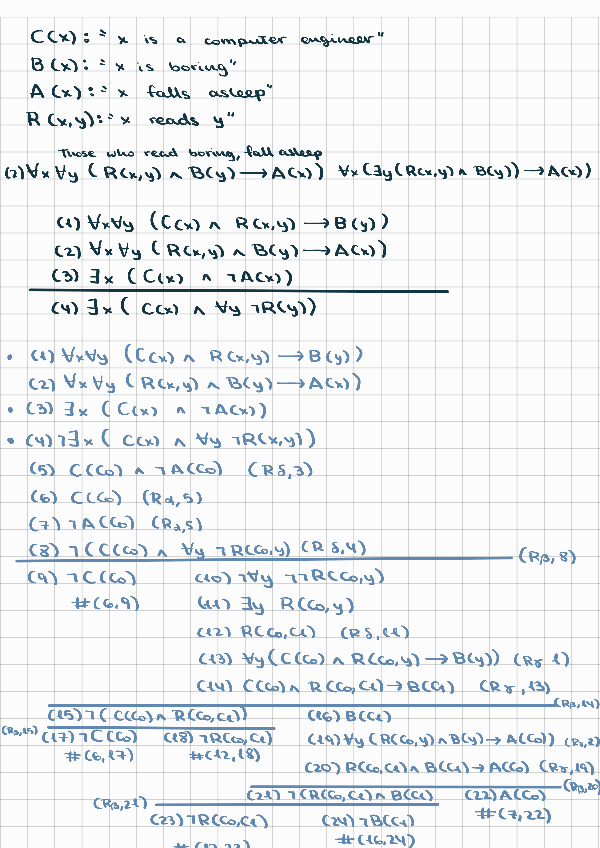 C(x): " x is a computer engineer"
B(x): " x is boring"
A(x): " x falls asleep"
R(x,y): " x reads y"
Those who read boring, fall asleep
(2) ∀x ∀y ( R(x,y) ∧ B(y) ⟶ A(x)) ∀x (∃y (R(x,y) ∧ B(y)) → A(x))
(1) ∀x∀y (C(x) ∧ R(x,y) ⟶ B(y))
(2) ∀x ∀y ( R(x,y) ∧ B(y) ⟶ A(x))
(3) ∃x ( C(x) ∧ ¬A(x))
(4) ∃x ( C(x) ∧ ∀y ¬R(y))
• (1) ∀x∀y (C(x) ∧ R(x,y) ⟶ B(y))
(2) ∀x ∀y ( R(x,y) ∧ B(y) ⟶ A(x))
• (3) ∃x ( C(x) ∧ ¬A(x))
• (4) ¬∃x ( C(x) ∧ ∀y ¬R(x,y))
(5) C(C₀) ∧ ¬A(C₀) (Rδ,3)
(6) C(C₀) (Rα,5)
(7) ¬A(C₀) (Rα,5)
(8) ¬(C(C₀) ∧ ∀y ¬R(C₀,y) (Rδ,4) (Rβ,8)
(9) ¬C(C₀) (10) ¬∀y ¬¬R(C₀,y)
#(6,9) (11) ∃y R(C₀,y)
(12) R(C₀,C₁) (Rδ,11)
(13) ∀y(C(C₀) ∧ R(C₀,y) → B(y)) (Rγ 1)
(14) C(C₀) ∧ R(C₀,C₁) → B(C₁) (Rγ,13)
(Rβ,14)
(15) ¬( C(C₀) ∧ R(C₀,C₁)) (16) B(C₁)
(Rβ,15) (17) ¬C(C₀) (18) ¬R(C₀,C₁) (19) ∀y (R(C₀,y) ∧ B(y) → A(C₀)) (Rγ,2)
#(6,17) #(12,18)
(20) R(C₀,C₁) ∧ B(C₁) → A(C₀) (Rγ,19)
(Rβ,20)
(21) ¬(R(C₀,C₁) ∧ B(C₁) (22) A(C₀)
(Rβ,21) #(7,22)
(23) ¬R(C₀,C₁) (24) ¬B(C₁)
#(16,24)